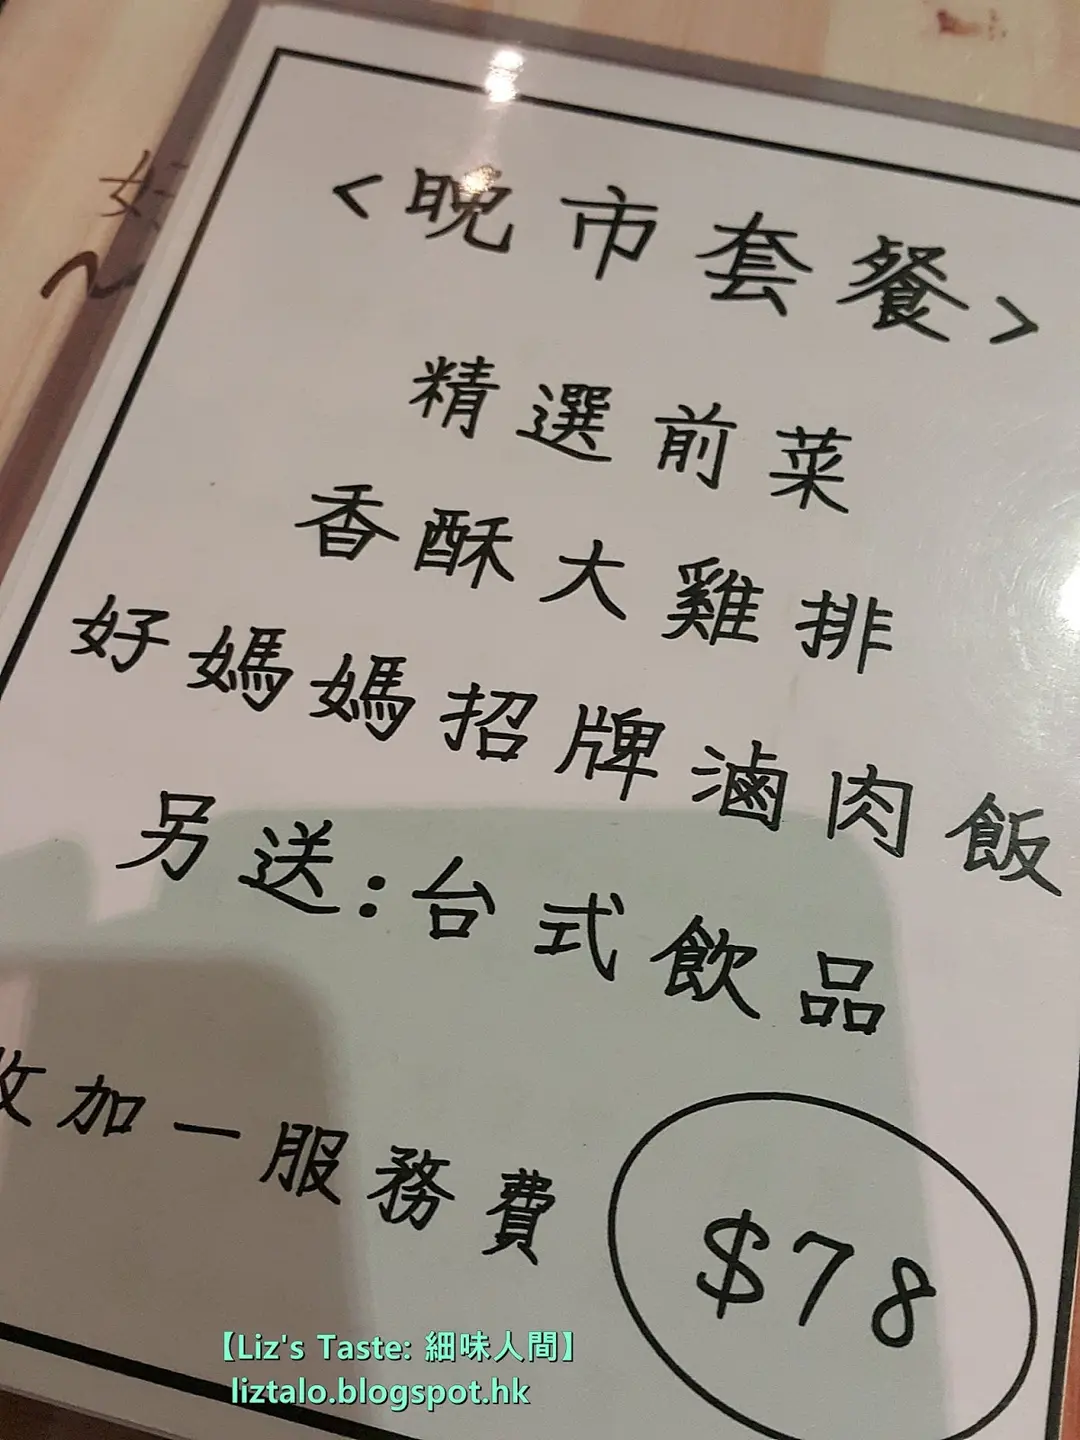 <晚市套餐>
精選前菜
香酥大雞排
好媽媽招牌滷肉飯
另送:台式飲品
收加一服務費
$78
【Liz's Taste: 細味人間】
liztalo.blogspot.hk